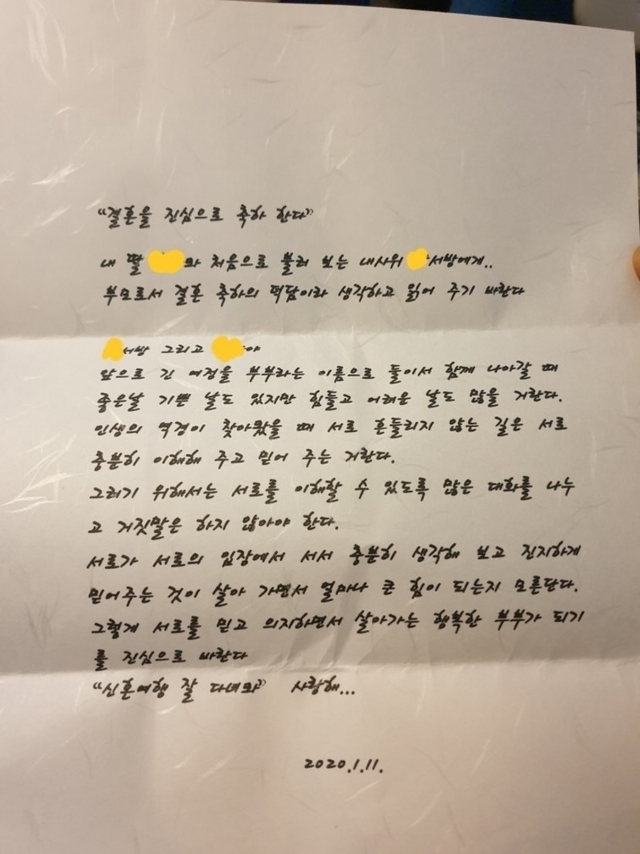 "결혼을 진심으로 축하 한다"
내 딸 와 처음으로 불러 보는 내사위 서방에게..
부모로서 결혼 축하의 덕담이라 생각하고 읽어 주기 바란다
서방 그리고 야
앞으로 긴 여정을 부부라는 이름으로 둘이서 함께 나아갈 때
좋은날 기쁜 날도 있지만 힘들고 어려운 날도 많을 거란다.
인생의 역경이 찾아왔을 때 서로 흔들리지 않는 길은 서로
충분히 이해해 주고 믿어 주는 거란다.
그러기 위해서는 서로를 이해할 수 있도록 많은 대화를 나누
고 거짓말은 하지 않아야 한다.
서로가 서로의 입장에서 서서 충분히 생각해 보고 진지하게
믿어주는 것이 살아 가면서 얼마나 큰 힘이 되는지 모른단다.
그렇게 서로를 믿고 의지하면서 살아가는 행복한 부부가 되기
를 진심으로 바란다
"신혼여행 잘 다녀와" 사랑해...
2020.1.11.